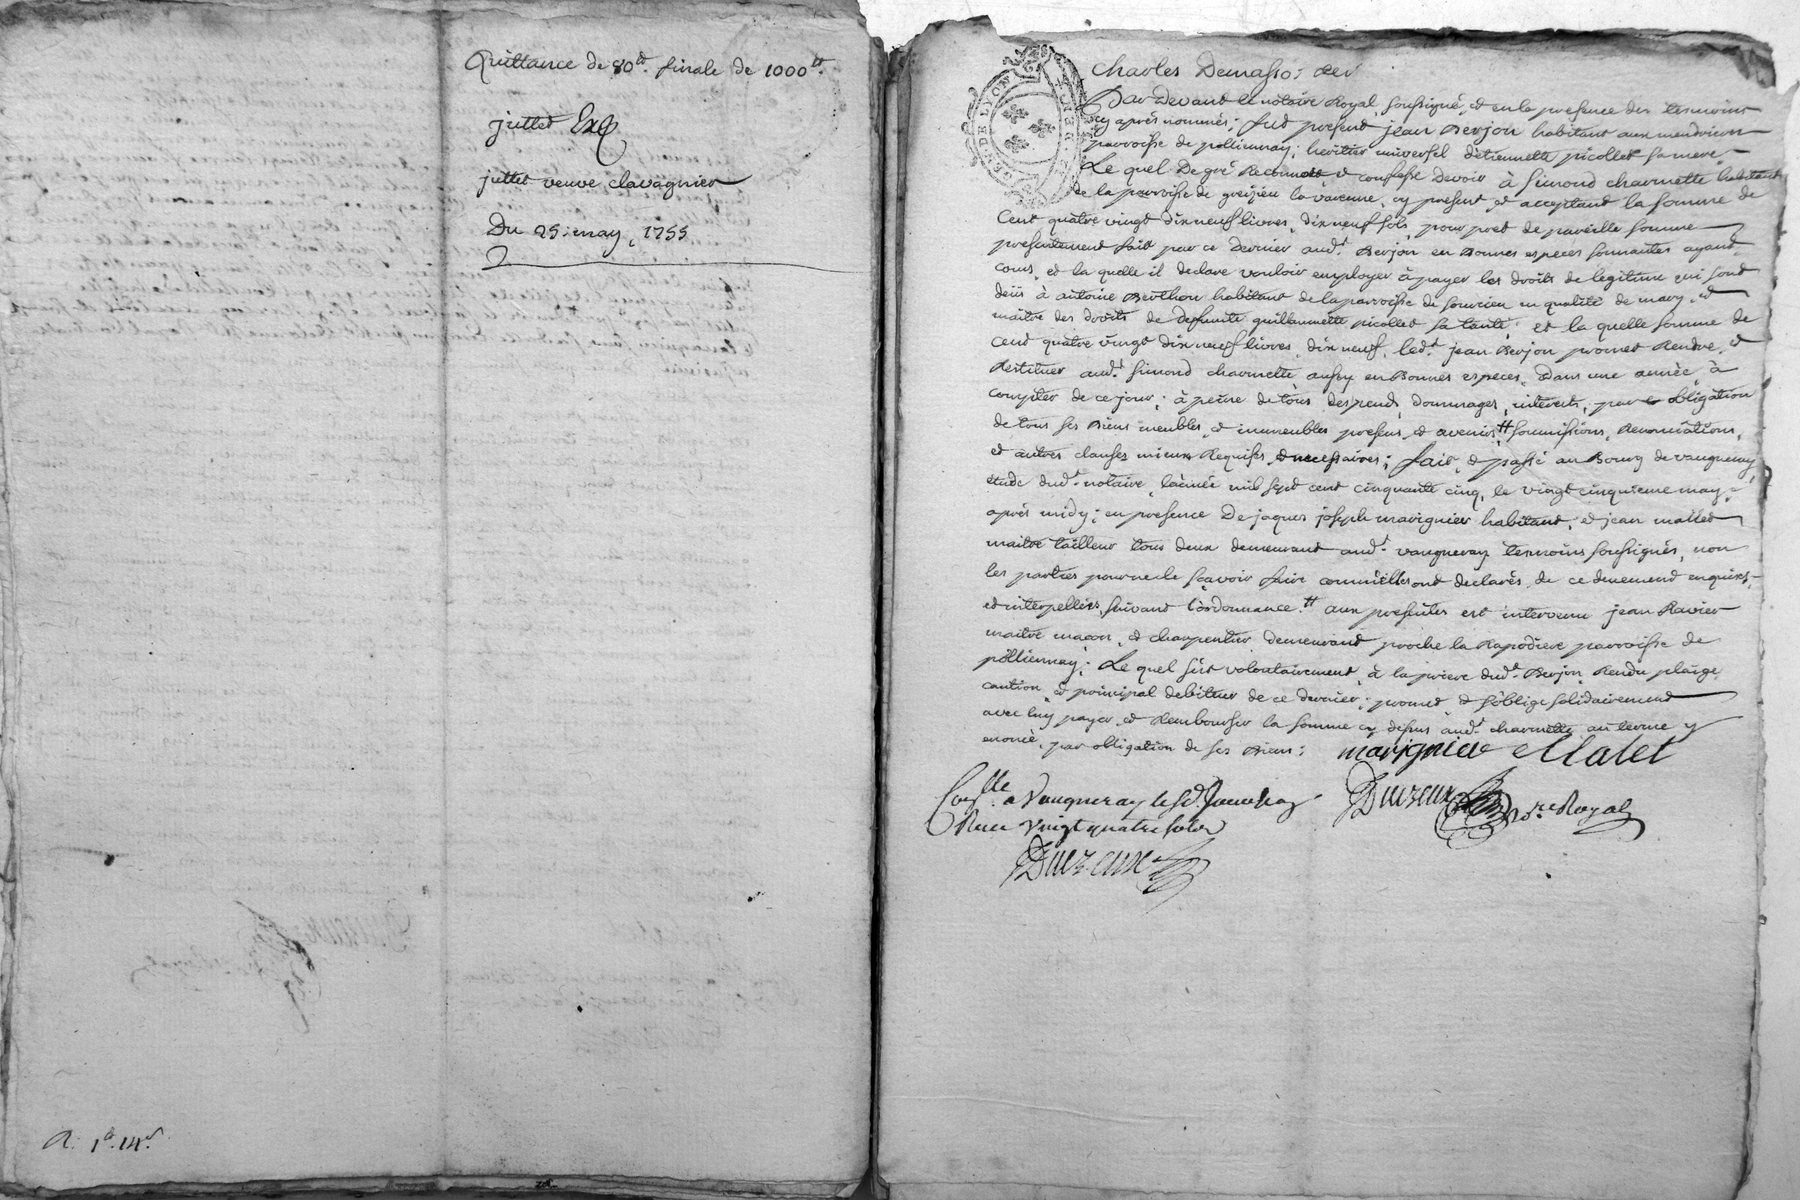 Quittance de 80lt. finale de 1000lt.
juttet Exp
juttet veuve clavagnier
Du 25: may, 1755
R. 1lt. 14s.
GEN DE LYON
charles Demasso: der
Par Devant le notaire Royal, soussigné, et en la presence des tesmoins
cy aprés nommés; fut present jean Berjon habitant aux
parroisse de pollionnay; heritier universel d'étiennette picollet sa mere.
Le quel De gré Reconnoit, et confesse Devoir à Simond charmette habitant
de la parroisse de greizieu la varenne, cy present et acceptant la somme de
Cent quatre vingt dix neuf livres, dix neuf sols, pour pret de pareille somme
presentement fait par ce dernier aud.t Berjon en Bonnes especes sonnantes ayant
cours, et la quelle il declare vouloir employer à payer les droits de legitime qui sont
deüs à antoine Berthon habitant de la parroisse de sourcieu en qualité de mary, et
maître des droits de deffunte guillaumette picollet sa tante; et la quelle somme de
cent quatre vingt dix neuf livres, dix neuf, led.t jean Berjon promet Rendre, et
Restituer aud.t Simond charmette aussy en Bonnes especes, Dans une année, à
compter de ce jour; à peine de tous despends, dommages, interets, par obligation
de tous ses Biens meubles, et immeubles presens, et avenir, # soumissions, Renonciations,
et autres clauses mieux Requises, et necessaires; fait, et passé au Bourg de vaugneray
étude dud.t notaire, l'année mil sept cent cinquante cinq, le vingt cinquieme may,
aprés midy; en presence De jaques joseph marignier habitant, et jean mallet
maitre tailleur tous deux demeurant aud.t vaugneray tesmoins soussignés, non
les parties pour ne le sçavoir faire comm'elles ont declarés, de ce deuement enquises
et interpellées, suivant l'ordonnance. # aux presentes est intervenu jean Ravier
maitre maçon, et charpentier demeurant proche la Rapodiere parroisse de
pollionnay; Le quel s'est volontairement, à la priere dud.t Berjon, Rendu pleige,
caution, et principal debiteur de ce dernier; promet, et s'oblige solidairement
avec luy payer, et Rembourser la somme cy dessus aud.t charmette au terme y
enoncé, par obligation de ses Biens: marignier Malet
Conlle a Vaugneray le
Receu vingt quatre sols
Duczeux
Duczeux Nre Royal